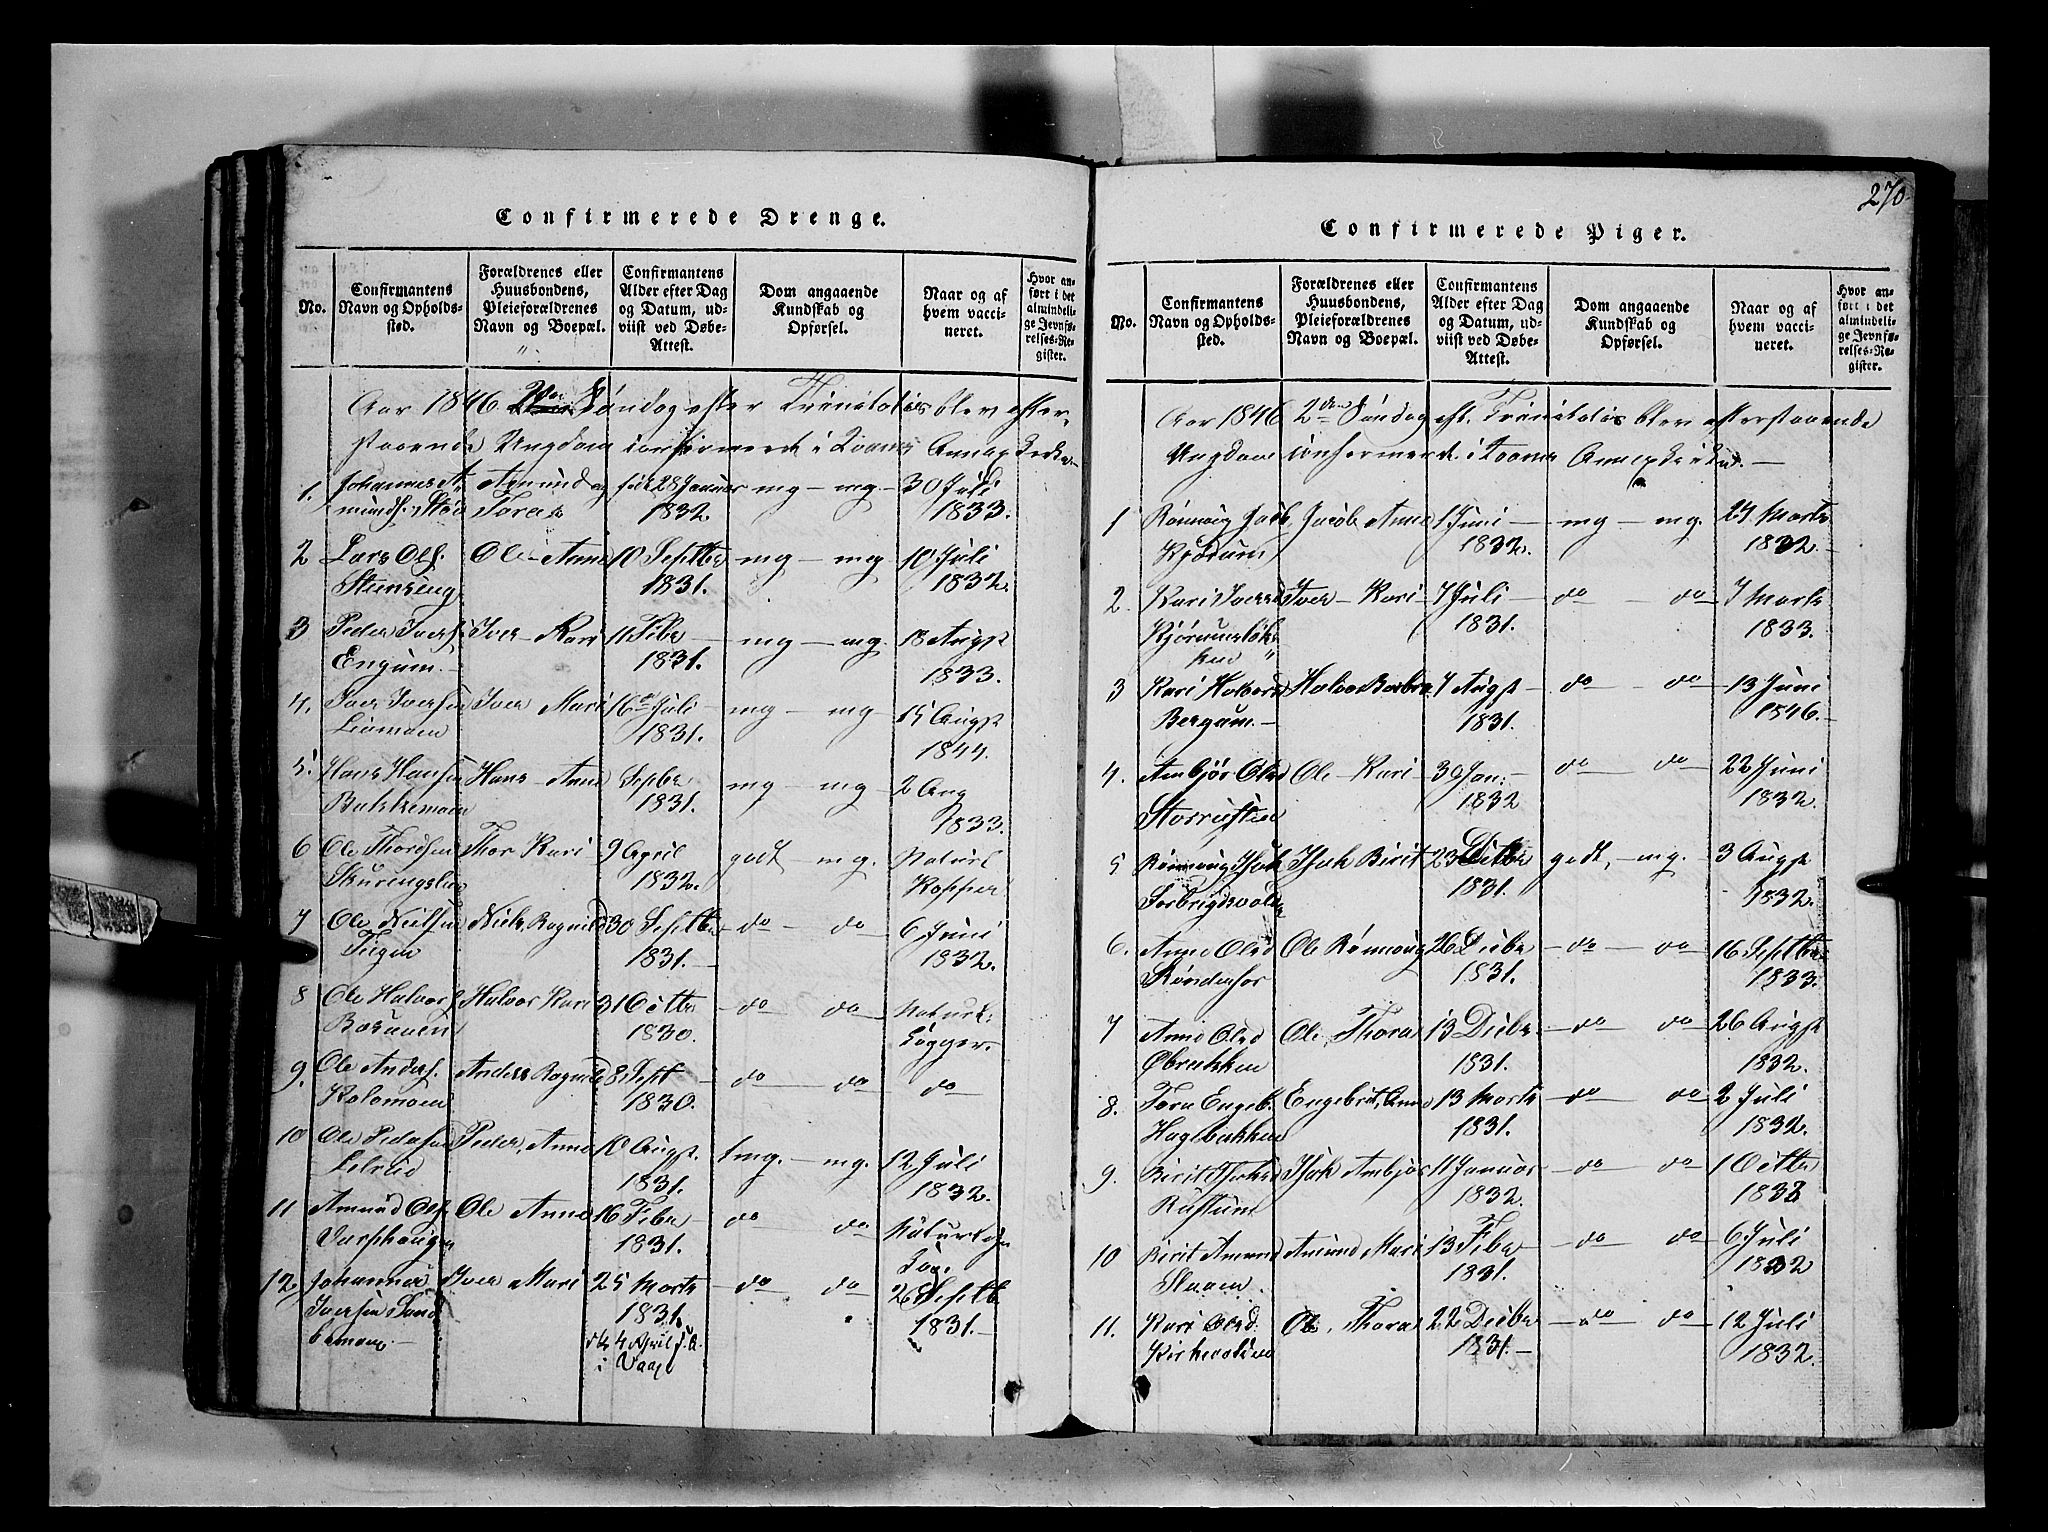 270.
Confirmerede Drenge.
No.
Confirmantens Navn og Opholdssted.
Forældrenes eller Huusbondens, Pleieforældrenes Navn og Boepæl.
Confirmantens Alder efter Dag og Datum, udviist ved Døbe-Attest.
Dom angaaende Kundskab og Opførsel.
Naar og af hvem vaccineret.
Hvor anført i det almindelige Jevnførelses-Register.
Aar 1846 2den Søndag efter Trinitatis blev efter-
staaende Ungdom confirmerede i Qvams Annexkirke
1. Johannes A- Amund og født 28 Januar mg — mg — 30 Juli
munds. Tora 1832. 1833.
2 Lars Ols. Ole — Anne 10 Septbr mg — mg 10 Juli
Steinseng 1831. 1832.
3 Peder Ivers. Iver — Kari 11 Febr — mg — mg. 18 Augst
Engum. 1831. 1833.
4. Iver Iversen Iver Mari 16 Juli — mg — mg 15 Augst
Liamoen 1831. 1844.
5. Hans Hansen Hans — Anne Septbr mg — mg — 2 Aug
Bakkemoen 1831. 1833.
6 Ole Thordsen Thor Kari 9 April godt — mg. Naturl
1832. Kopper
7 Ole Nielsen Niels Ragnild 30 Septbr — do — do — 6 Juni
Teigen 1831. — 1832.
8 Ole Halvors. Halvor Kari 31 Octbr — do — do — Naturl.
1830.
9. Ole Anders. Anders Ragnild 8 Sept — do — do — do —
Kolomoen 1830.
10 Ole Pedersen Peder, Anne 10 Augst. tmg. — mg. 12 Juli
1831. 1832.
11 Amund Ols. Ole Anne 16 Febr — do do
Varphaugen 1831.
12. Johannes Iver Mari 25 Marts — do — do 26 Septb.
Iversen Sand- 1831. 1831. —
bumoen — 4 April s. A.
i Vaage
Confirmerede Piger.
No.
Confirmantens Navn og Opholdssted.
Forældrenes eller Huusbondens, Pleieforældrenes Navn og Boepæl.
Confirmantens Alder efter Dag og Datum, udviist ved Døbe-Attest.
Dom angaaende Kundskab og Opførsel.
Naar og af hvem vaccineret.
Hvor anført i det almindelige Jevnførelses-Register.
Aar 1846 2den Søndag eft. Trinitatis blev efterstaaende
Ungdom confirmerede i Qvams Annexkirke. —
1 Rønnoug Jacob. Jacob Anne 1 Juni — mg — mg. 27 Marts
Kjørum 1832. 1832. —
2. Kari Iversd Iver — Kari — 7 Juli — do — do — 7 Marts
Kjørumsløk- 1831. 1833.
ken
3 Kari Halvorsd Halvor Barbro 7 Augst — do — do — 13 Juni
Bergum. — 1831. 1846. —
4. Ambjør Olsd Ole — Kari — 30 Jan. — do — do — 22 Juni
Storrusten 1832 1832.
5 Rønnoug Isak. Isak Birit 23 Decbr godt, — mg. — 3 Augst
1831. 1832.
6. Anne Olsd Ole Rønnoug 26 Decbr — do — do — 16 Septbr
1831. 1833.
7 Anne Olsd Ole, Thora 13 Decbr — do — do — 26 Augst
Øbrekken 1831. 1832.
8. Tora Engeb. Engebrit, Anne 13 Marts — do — do — 2 Juli
Hagebakken 1831. 1832.
9. Birit Isaksd Isak Ambjør 11 Januar — do — do — 1 Octbr
Rustum 1832. 1832
10 Birit Amund Amund Mari 13 Febr — do — do — 6 Juli
1831. 1832
11. Kari Olsd. Ole, Thora 22 Decbr — do — do — 12 Juli
Kirkevolden 1831. — 1832.